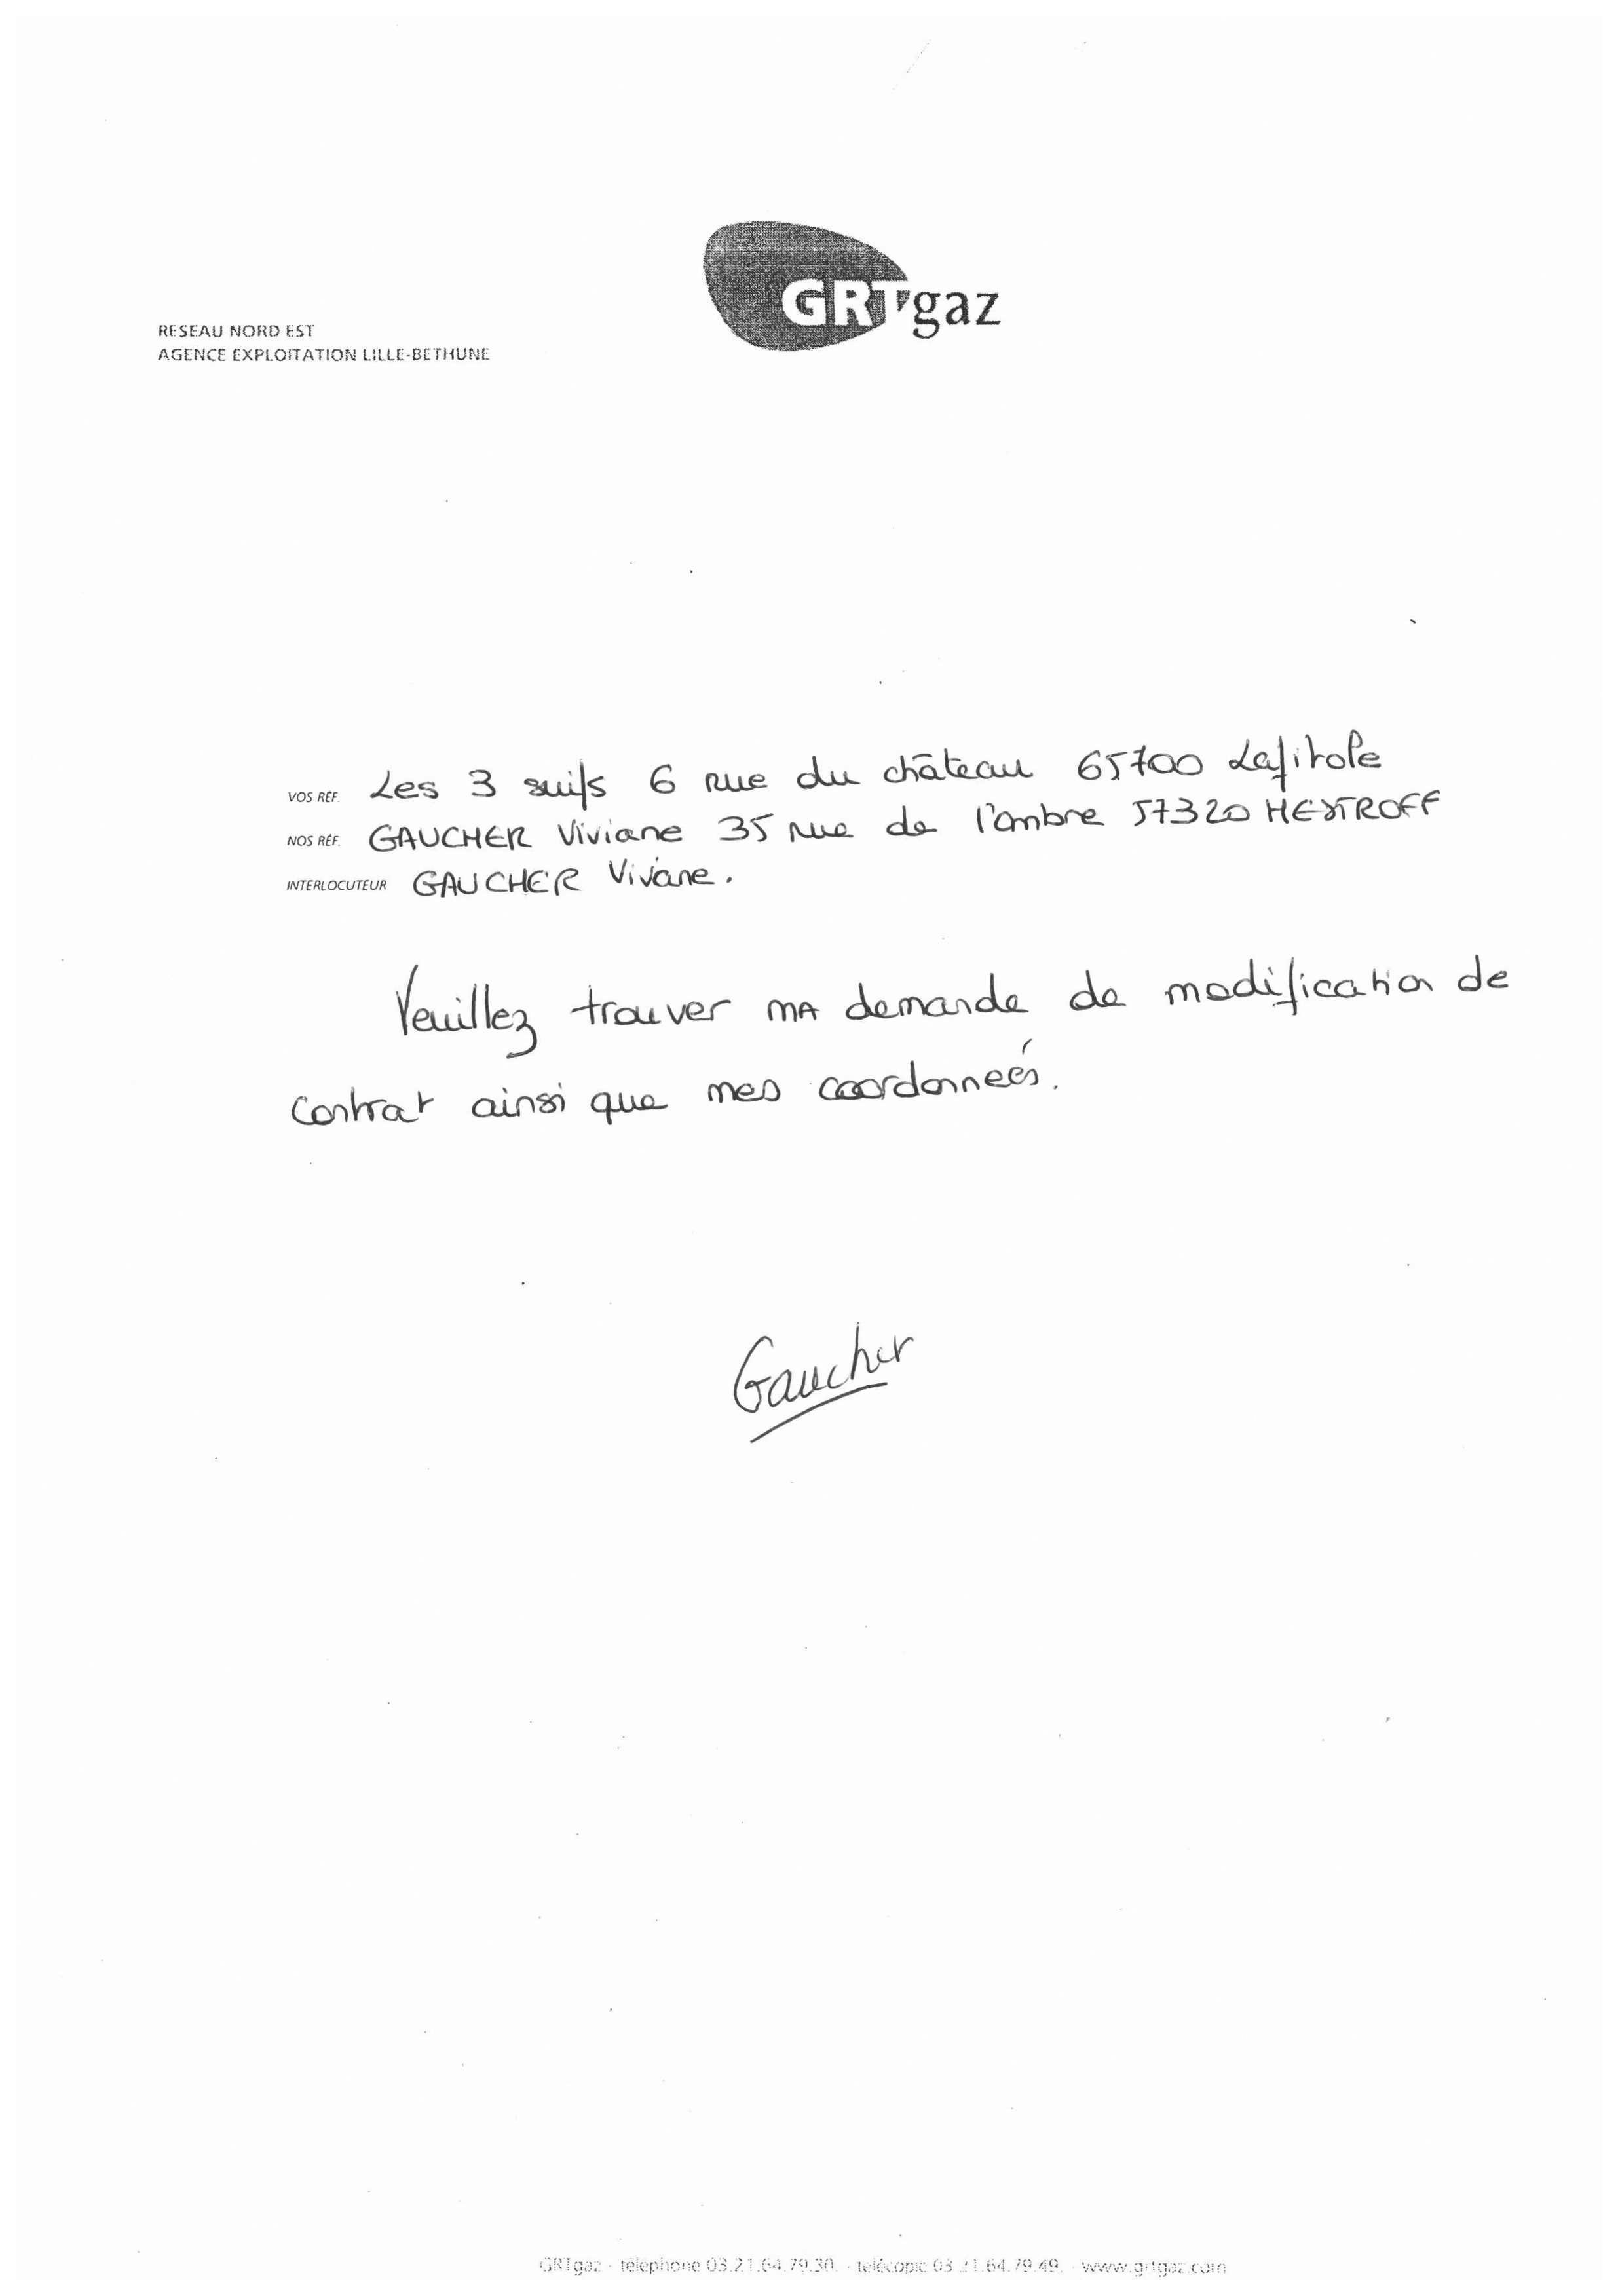 GRTgaz
RESEAU NORD EST
AGENCE EXPLOITATION LILLE-BETHUNE
VOS RÉF. Les 3 suifs 6 rue du château 65700 Lafitole
NOS RÉF. GAUCHER Viviane 35 rue de l'ombre 57320 HESTROFF
INTERLOCUTEUR GAUCHER Viviane.
Veuillez trouver MA demande de modification de
contrat ainsi que mes coordonnées.
Gaucher
GRTgaz - telephone 03.21.64.79.30. - telécopie 03.21.64.79.49. - www.grtgaz.com